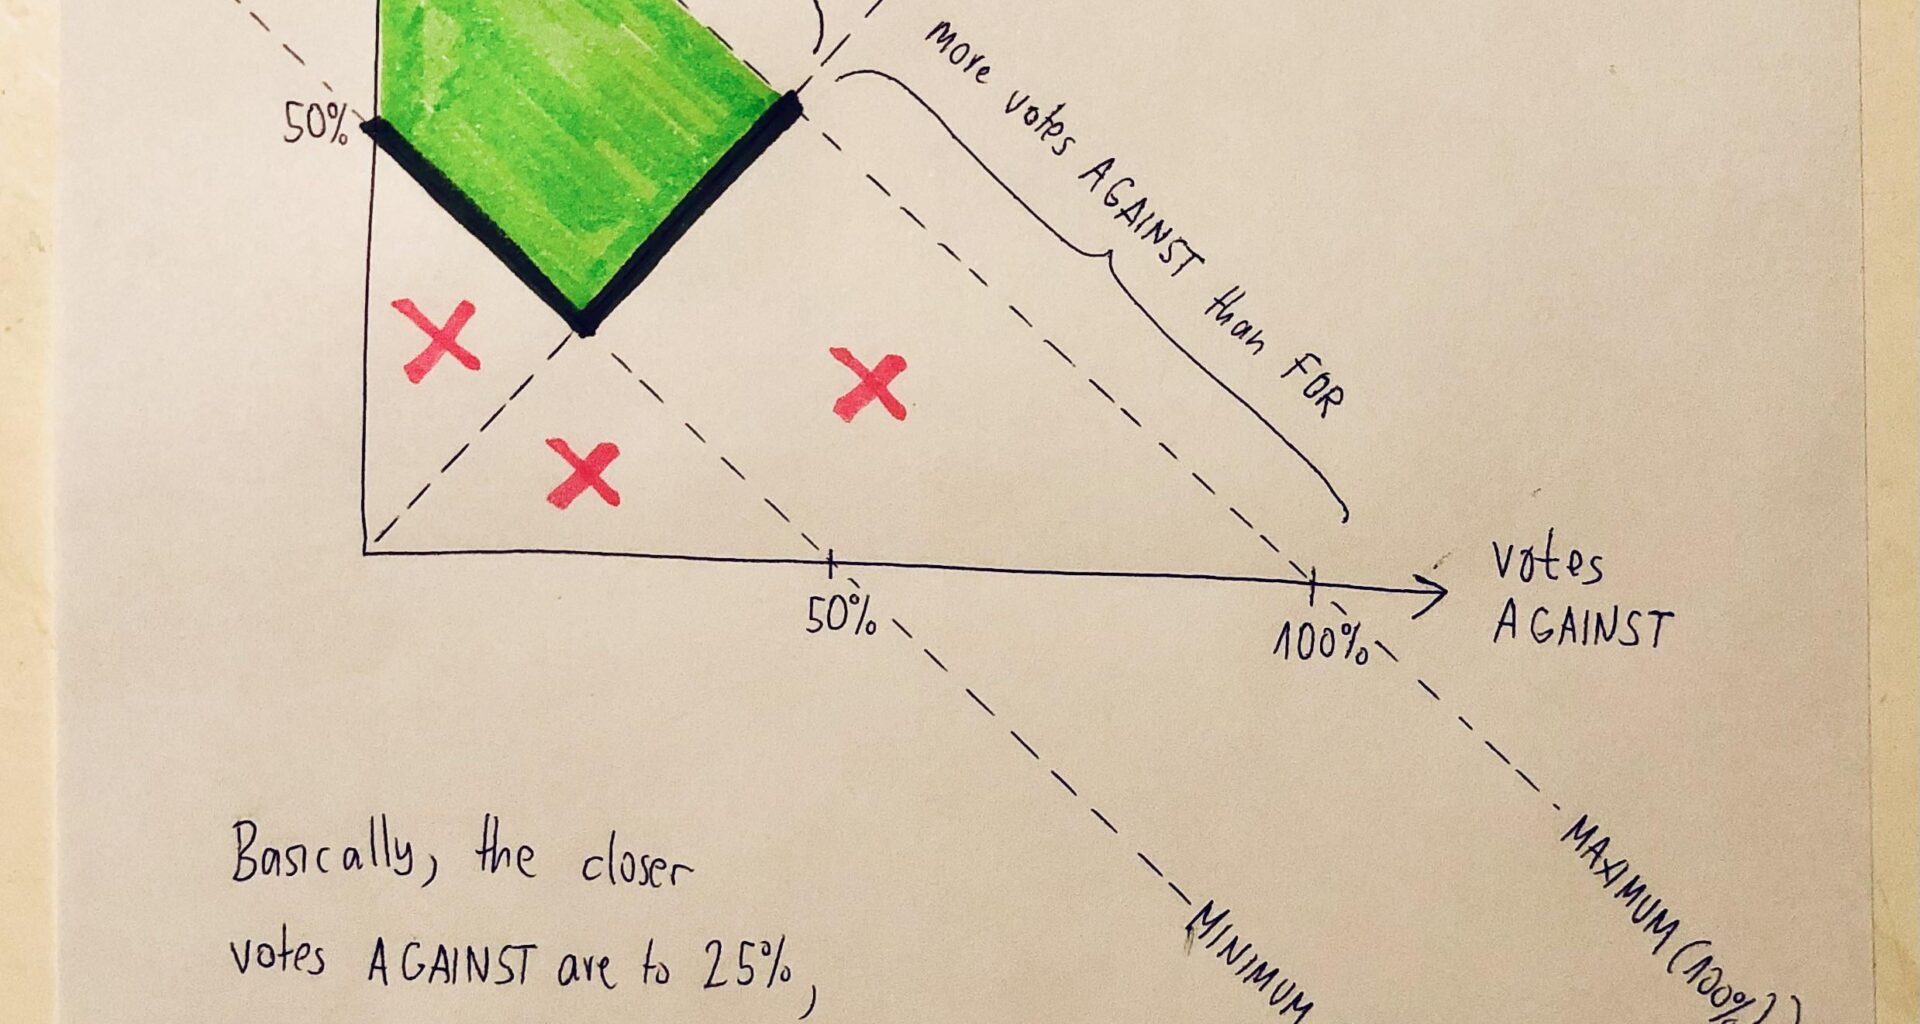 more votes AGAINST than FOR
50%
votes
AGAINST
50%
100%
Basically, the closer
votes AGAINST are to 25%,
MINIMUM
MAXIMUM (100%)